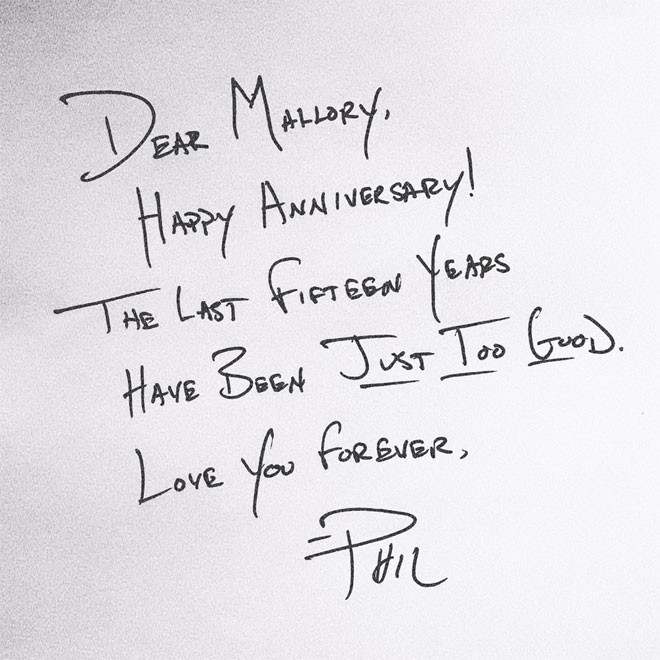 Dear Mallory,
Happy Anniversary!
The Last Fifteen Years
Have Been Just Too Good.
Love You Forever,
=Phil